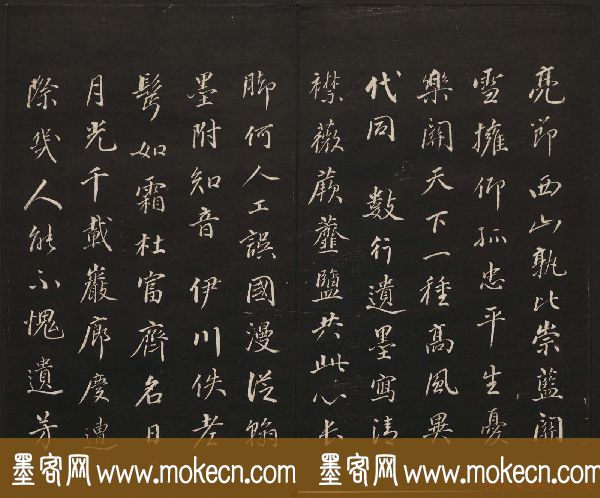 亮節西山孰比崇藍關
雪擁仰孤忠平生憂
樂關天下一種高風異
代同 數行遺墨寫清
襟薇蕨虀鹽共此心長
腳何人工誤國漫從翰
墨附知音 伊川佚老
鬢如霜杜富齊名日
月光千載巖廊慶遭
際幾人能不愧遺芳
墨客网 www.mokecn.com 墨客网 www.mokecn.com